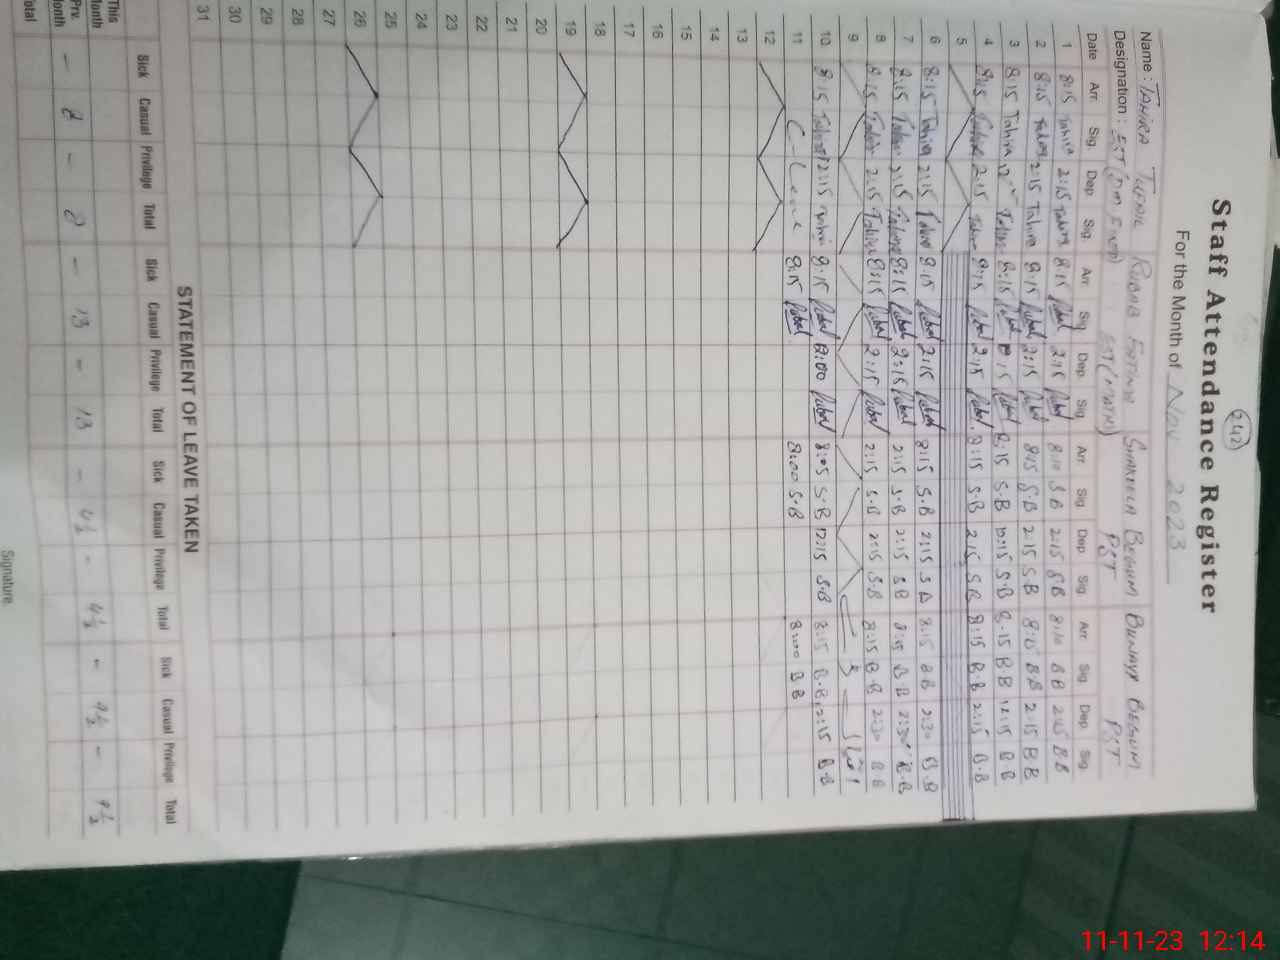 242
Staff Attendance Register
For the Month of Nov 2023
Name : TAHIRA TUFAIL RUBAB FATIMA SHAKEELA BEGUM BUNAYA BEGUM
Designation : EST (MATHS) PST PST
Date Arr. Sig. Dep Sig. Arr. Sig. Dep. Sig. Arr. Sig. Dep Sig. Arr. Sig. Dep Sig.
1 8:15 Tahira 2:15 Tahira 8:15 Rubab 2:15 Rubab 8:10 S.B 2:15 S.B 8:10 B B 2:15 B B
2 8:15 Tahira 2:15 Tahira 8:15 Rubab 2:15 Rubab 8:15 S.B 2:15 S B 8:15 B B 2:15 B B
3 8:15 Tahira Tahira 8:15 Rubab Rubab 8:15 S.B 12:15 S.B 8:15 B B 12:15 B B
4 8:15 Tahira 2:15 Tahira 8:15 Rubab 2:15 Rubab 8:15 S.B 2:15 S.B 8:15 B.B 2:15 B.B
5
6 8:15 Tahira 2:15 Tahira 8:15 Rubab 2:15 Rubab 8:15 S.B 2:15 S B 8:15 B B 2:30 B.B
7 8:15 Tahira 2:15 Tahira 8:15 Rubab 2:15 Rubab 2:15 S.B 2:15 S B 8:15 B B 2:30 B.B
8 8:15 Tahira 2:15 Tahira 8:15 Rubab 2:15 Rubab 2:15 S.B 2:15 S.B 8:15 B.B 2:30 B B
9
10 8:15 Tahira 12:15 Tahira 8:15 Rubab 12:00 Rubab 8:05 S.B 12:15 S.B 8:15 B.B 12:15 B.B
11 C-Leave 8:15 Rubab 8:00 S.B 8:00 B B
12
13
14
15
16
17
18
19
20
21
22
23
24
25
26
27
28
29
30
31
STATEMENT OF LEAVE TAKEN
Sick Casual Privilege Total Sick Casual Privilege Total Sick Casual Privilege Total Sick Casual Privilege Total
This Month
Prv. Month - 8 - 8 - 13 - 13 - 4½ - 4½ - 9½ - 9½
Total
Signature
11-11-23 12:14